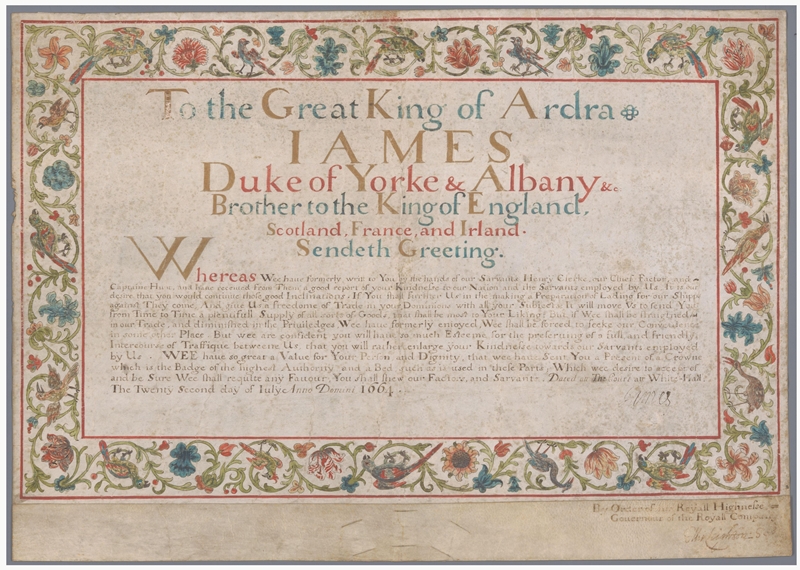 To the Great King of Ardra
IAMES
Duke of Yorke & Albany &c.
Brother to the King of England,
Scotland, France, and Irland.
Sendeth Greeting.
Whereas Wee have formerly writ to You by the hands of our Servants Henry Clerke, our Chief Factor, and
Captaine Hust, and have received from Them a good report of your Kindnesse to our Nation and the Servants employed by Us. It is our
desire that you would continue those good Inclinations. If You shall further Us in the making a Preparation of Lading for our Shipps
against They come, And give Us a freedome of Trade in your Dominions with all your Subjects It will move Us to send You
from Time to Time a plentifull Supply of all sorts of Goods, as shall be most to Your Liking But if Wee shall be streightned
in our Trade, and diminished in the Priviledges Wee have formerly enjoyed, Wee shall be forced to seeke our Conveniencies
in some other Place But wee are confident you will have so much Esteeme, for the preserving of a full and friendly
Intercourse of Traffique betweene Us, that you will rather enlarge your Kindnesse towards our Servants employed
by Us. WEE have so great a Value for Your Person and Dignity, that wee have Sent You a Present of a Crowne
which is the Badge of the highest Authority and a Bed such as is used in these Parts, Which wee desire to accept of
and be Sure Wee shall requite any Favour, You shall shew our Factory, and Servants. Dated at The Court at White-Hall
The Twenty Second day of Iulye Anno Domini 1664.
James
By Order of his Royall Highnesse,
Governour of the Royall Company